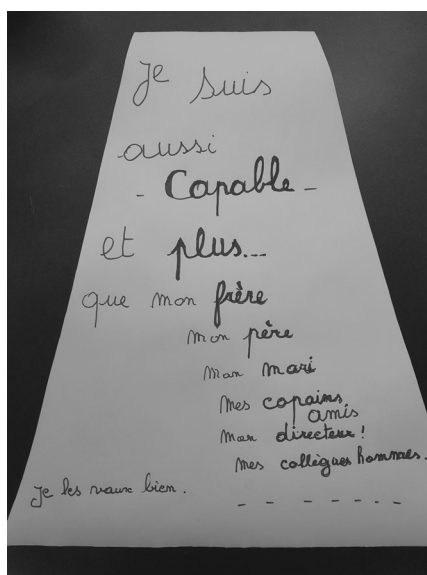 Je suis
aussi
- Capable -
et plus...
que mon frère
mon père
mon mari
mes copains
amis
mon directeur !
mes collègues hommes.
Je les vaux bien.
- - - - - - -